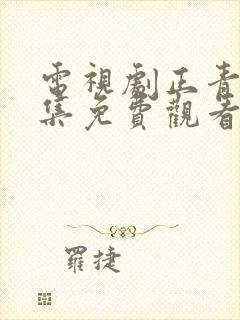 電視劇正青
集免費觀看
羅捷